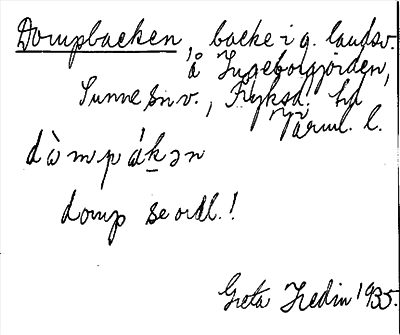 Dompbacken, backe i g. landsv.
å Ingeborgjorden,
Sunne sn v., Fryksd. hd
Värml. l.
dàmpákən
domp se ordl.!
Greta Hedin 1935.